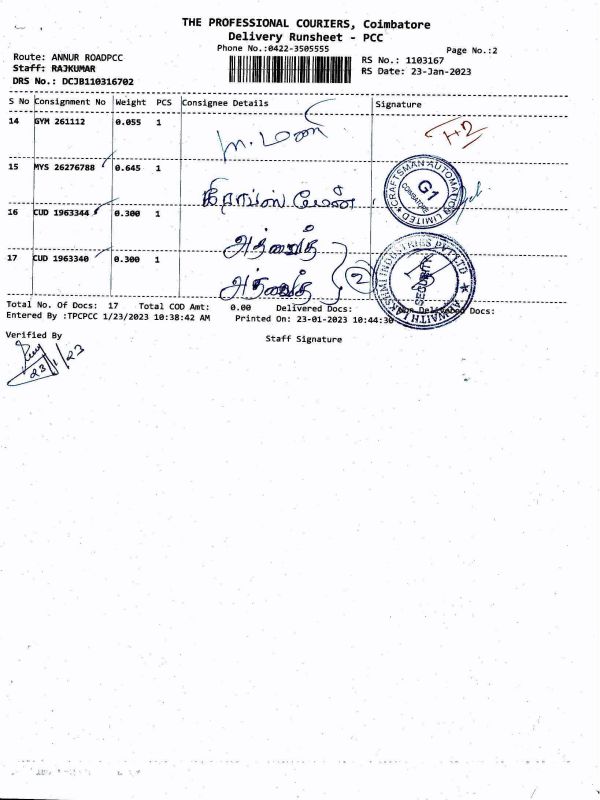 THE PROFESSIONAL COURIERS, Coimbatore
Delivery Runsheet - PCC
Phone No.:0422-3505555
Page No.:2
Route: ANNUR ROADPCC
RS No.: 1103167
Staff: RAJKUMAR
RS Date: 23-Jan-2023
DRS No.: DCJB110316702
S No Consignment No Weight PCS Consignee Details Signature
14 GYM 261112 0.055 1 ம. மணி
15 MYS 26276788 0.645 1 கிராப்ஸ் மேன்
CRAFTSMAN AUTOMATION LIMITED COIMBATORE G1
16 CUD 1963344 0.300 1 அத்வைத்
17 CUD 1963340 0.300 1 அத்வைத் 2
LAKSHMI INDUSTRIES PVT LTD SECURITY
Total No. Of Docs: 17 Total COD Amt: 0.00 Delivered Docs: Non Delivered Docs:
Entered By :TPCPCC 1/23/2023 10:38:42 AM Printed On: 23-01-2023 10:44:30
Verified By
Staff Signature
23/1/23